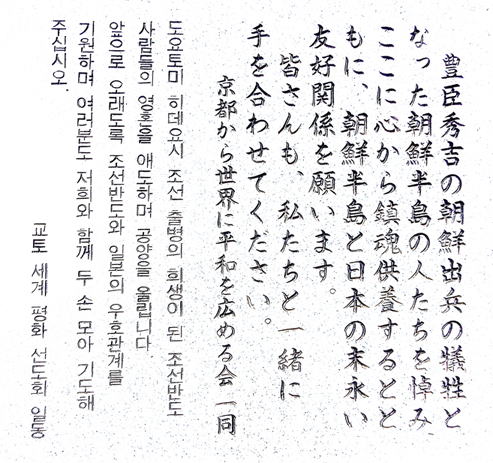 豊臣秀吉の朝鮮出兵の犠牲と
なった朝鮮半島の人たちを悼み
ここに心から鎮魂供養するとと
もに、朝鮮半島と日本の末永い
友好関係を願います。
皆さんも、私たちと一緒に
手を合わせてください。
京都から世界に平和を広める会 一同
도요토미 히데요시 조선 출병의 희생이 된 조선반도
사람들의 영혼을 애도하며 공양을 올립니다.
앞으로 오래도록 조선반도와 일본의 우호관계를
기원하며 여러분도 저희와 함께 두 손 모아 기도해
주십시오.
교토 세계 평화 선도회 일동